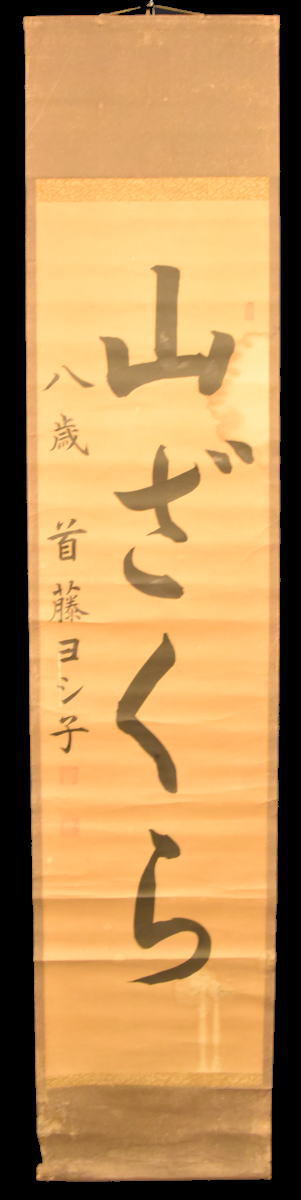 山ざくら
八歳 首藤ヨシ子